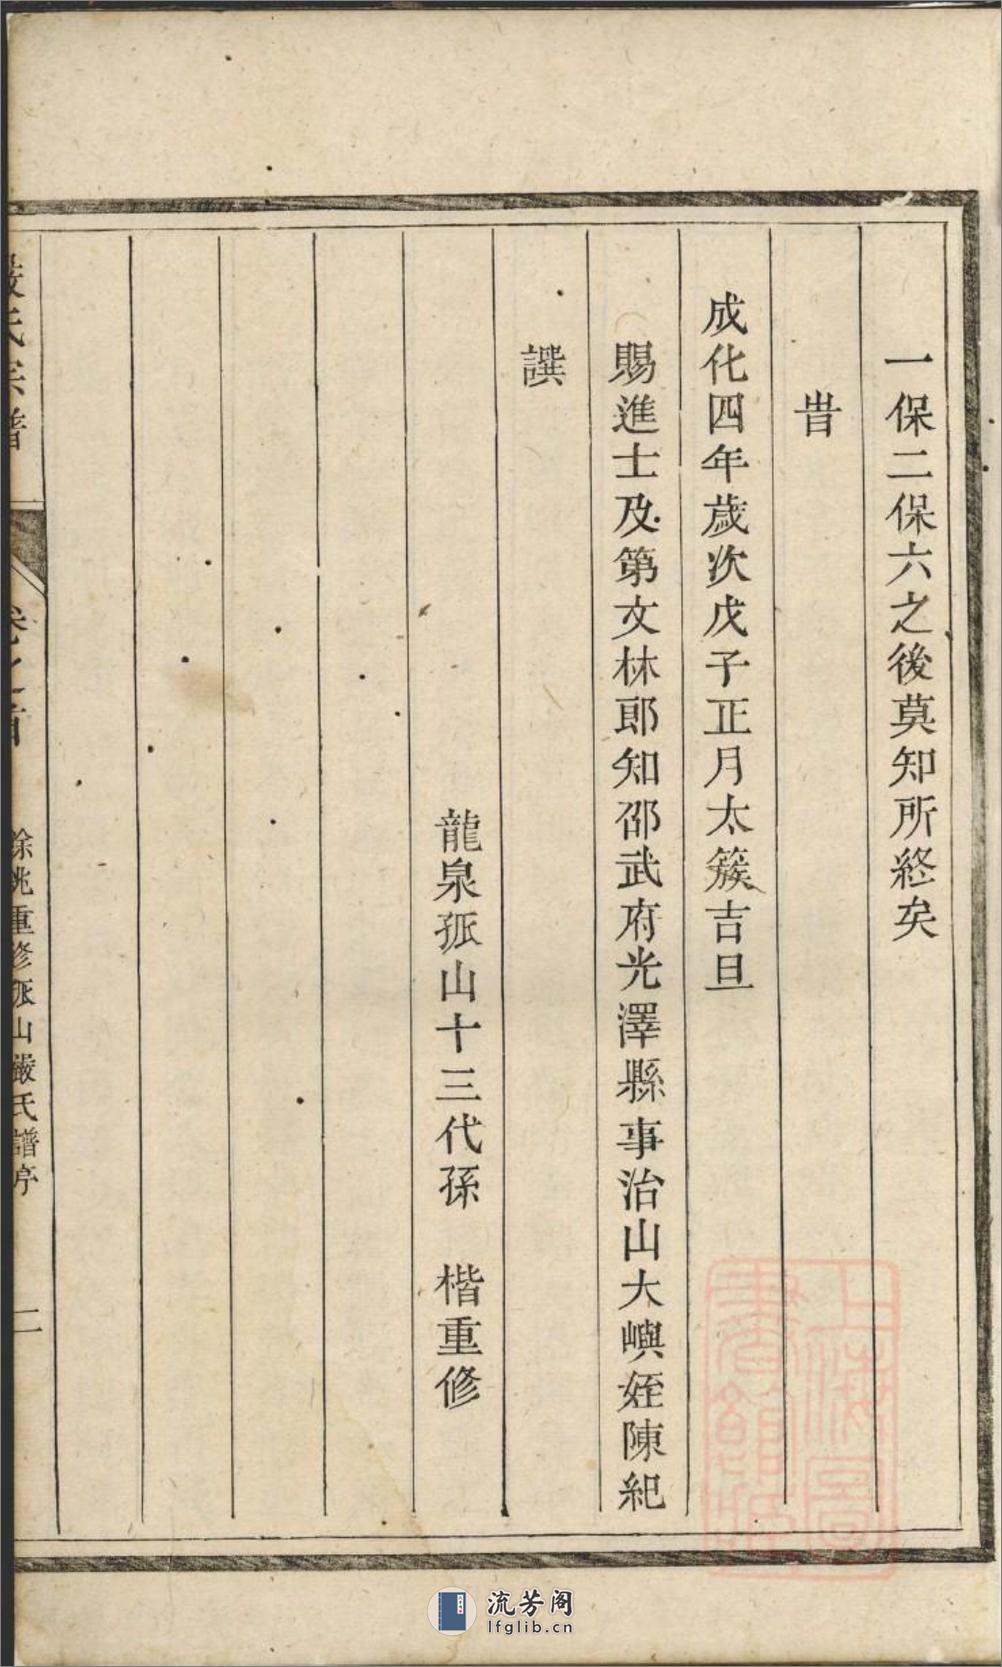 一保二保六之後莫知所終矣
旹
成化四年歲次戊子正月太簇吉旦
賜進士及第文林郎知邵武府光澤縣事治山大嶼姪陳紀
譔
龍泉孤山十三代孫　楷重修
嚴氏宗譜　卷之首　餘姚重修孤山嚴氏譜序　二
上海圖書館藏
流芳阁
lfglib.cn